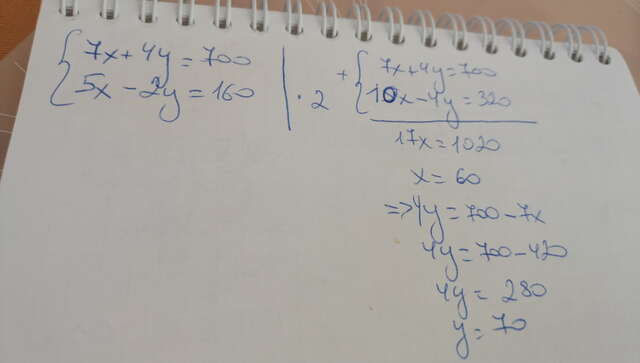 7x+4y=700
5x-2y=160 | ·2
+ 7x+4y=700
10x-4y=320
17x=1020
x=60
=>4y=700-7x
4y=700-420
4y=280
y=70